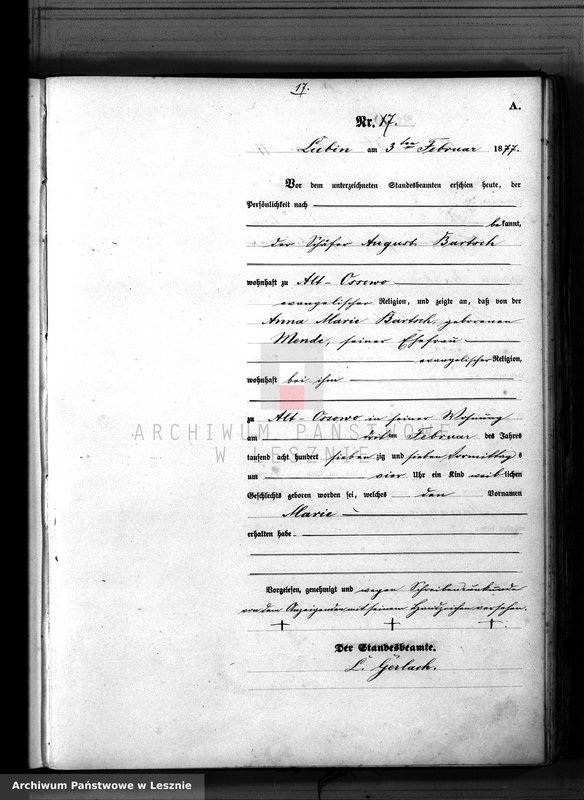 17.
A.
Nr. 17.
Lubin am 3ten Februar 1877.
Vor dem unterzeichneten Standesbeamten erschien heute, der
Persönlichkeit nach
bekannt,
der Schäfer August Bartsch
wohnhaft zu Alt-Ossowo
evangelischer Religion, und zeigte an, daß von der
Anna Marie Bartsch, geborenen
Mende, seiner Ehefrau
evangelischer Religion,
wohnhaft bei ihm
zu Alt-Ossowo in seiner Wohnung
am ten Februar des Jahres
tausend acht hundert siebenzig und sieben Vormittags
um vier Uhr ein Kind weiblichen
Geschlechts geboren worden sei, welches den Vornamen
Marie
erhalten habe.
Vorgelesen, genehmigt und wegen Schreibensunkunde
von dem Anzeigenden mit seinem Handzeichen versehen.
+ + +
Der Standesbeamte.
L. Gerlach.
ARCHIWUM PAŃSTWOWE
W LESZNIE
Archiwum Państwowe w Lesznie